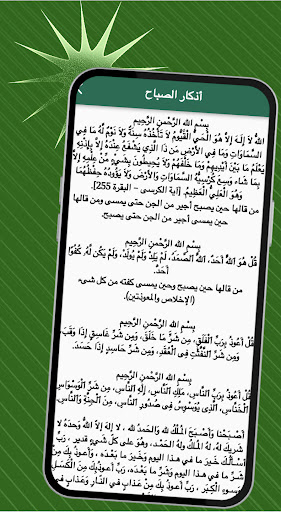 أذكار الصباح
بِسْمِ اللهِ الرَّحْمنِ الرَّحِيم
اللّهُ لاَ إِلَـهَ إِلاَّ هُوَ الْحَيُّ الْقَيُّومُ لاَ تَأْخُذُهُ سِنَةٌ وَلاَ نَوْمٌ لَّهُ مَا فِي
السَّمَاوَاتِ وَمَا فِي الأَرْضِ مَن ذَا الَّذِي يَشْفَعُ عِنْدَهُ إِلاَّ بِإِذْنِهِ
يَعْلَمُ مَا بَيْنَ أَيْدِيهِمْ وَمَا خَلْفَهُمْ وَلاَ يُحِيطُونَ بِشَيْءٍ مِّنْ عِلْمِهِ إِلاَّ
بِمَا شَاء وَسِعَ كُرْسِيُّهُ السَّمَاوَاتِ وَالأَرْضَ وَلاَ يَؤُودُهُ حِفْظُهُمَا
وَهُوَ الْعَلِيُّ الْعَظِيمُ. [آية الكرسى - البقرة 255].
من قالها حين يصبح أجير من الجن حتى يمسى ومن قالها
حين يمسى أجير من الجن حتى يصبح.
بِسْمِ اللهِ الرَّحْمنِ الرَّحِيم
قُلْ هُوَ اللَّهُ أَحَدٌ، اللَّهُ الصَّمَدُ، لَمْ يَلِدْ وَلَمْ يُولَدْ، وَلَمْ يَكُن لَّهُ كُفُوًا
أَحَدٌ.
من قالها حين يصبح وحين يمسى كفته من كل شىء
(الإخلاص والمعوذتين).
بِسْمِ اللهِ الرَّحْمنِ الرَّحِيم
قُلْ أَعُوذُ بِرَبِّ الْفَلَقِ، مِن شَرِّ مَا خَلَقَ، وَمِن شَرِّ غَاسِقٍ إِذَا وَقَبَ،
وَمِن شَرِّ النَّفَّاثَاتِ فِي الْعُقَدِ، وَمِن شَرِّ حَاسِدٍ إِذَا حَسَدَ.
بِسْمِ اللهِ الرَّحْمنِ الرَّحِيم
قُلْ أَعُوذُ بِرَبِّ النَّاسِ، مَلِكِ النَّاسِ، إِلَهِ النَّاسِ، مِن شَرِّ الْوَسْوَاسِ
الْخَنَّاسِ، الَّذِي يُوَسْوِسُ فِي صُدُورِ النَّاسِ، مِنَ الْجِنَّةِ وَالنَّاسِ.
أَصْـبَحْنا وَأَصْـبَحَ المُـلْكُ لله وَالحَمدُ لله ، لا إلهَ إلاّ اللّهُ وَحدَهُ لا
شَريكَ لهُ، لهُ المُـلكُ ولهُ الحَمْـد، وهُوَ على كلّ شَيءٍ قدير ، رَبِّ
أسْـأَلُـكَ خَـيرَ ما في هـذا اليوم وَخَـيرَ ما بَعْـدَه ، وَأَعـوذُ بِكَ مِنْ
شَـرِّ ما في هـذا اليوم وَشَرِّ ما بَعْـدَه، رَبِّ أَعـوذُبِكَ مِنَ الْكَسَـلِ
وَسـوءِ الْكِـبَر ، رَبِّ أَعـوذُ بِكَ مِنْ عَـذابٍ في النّـارِ وَعَـذابٍ في